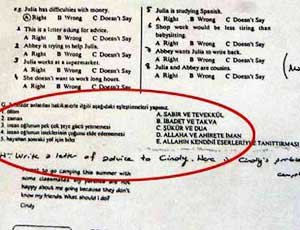 e.g. Julia has difficulties with money.
A Right B Wrong C Doesn't Say
1 This is a letter asking for advice.
A Right B Wrong C Doesn't Say
2 Abbey is trying to help Julia.
A Right B Wrong C Doesn't Say
3 Julia works at a supermarket.
A Right B Wrong C Doesn't Say
4 She doesn't want to work long hours.
A Right B Wrong C Doesn't Say
5 Julia is studying Spanish.
A Right B Wrong C Doesn't Say
6 Shop work would be less tiring than
babysitting.
A Right B Wrong C Doesn't Say
7 Abbey wants Julia to write back.
A Right B Wrong C Doesn't Say
8 Julia and Abbey are cousins.
A Right B Wrong C Doesn't Say
aşağıdaki eşleştirmeleri yapınız.
1. ölüm
2. zaman
3. insan oğlunun pek çok şeye gücü yetmemesi
4. insan oğlunun isteklerinin çoğunu elde edememesi
5. hayattan sonraki yol için bilet
A. SABIR VE TEVEKKÜL
B. İBADET VE TAKVA
C. ŞÜKÜR VE DUA
D. ALLAHA VE AHİRETE İMAN
E. ALLAHIN KENDİNİ ESERLERİYLE TANITTIRMASI
Write a letter of advice to Cindy. Here is Cindy's
I want to go camping this summer with
some classmates. My parents are not
happy about me going because they don't
know my friends. What should I do?
Cindy